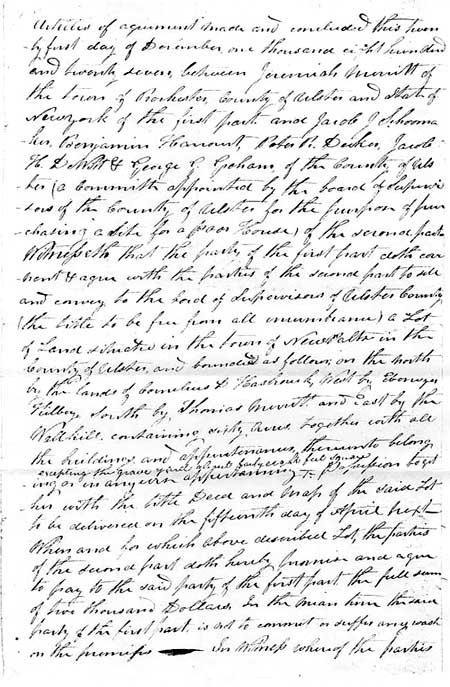 Articles of agreement made and concluded this twen
-ty first day of December one thousand eight hundred
and twenty seven, between Jeremiah Merritt of
the town of Rochester, County of Ulster and State of
Newyork of the first part and Jacob J. Schoonma
-ker, Benjamin Harcourt, Peter R. Decker, Jacob
H. DeWitt & George G. Graham, of the County of Uls
-ter (a Committe appointed by the board of Supervi
-sors of the County of Ulster for the purpose of pur
-chasing a Site for a Poor House) of the second part
Witnesseth that the party of the first part doth cov
-enent & agree with the parties of the second part to sell
and convey to the bord of Supervisors of Ulster County
(the title to be free from all incumbrance) a Lot
of Land situate in the town of Newpaltz in the
County of Ulster, and bounded as follows, on the north
by the lands of Cornelius D. Hasbrouck, West by Ebenezer
South by Thomas Merritt and East by the
Wallkill. containing sixty acres together with all
the buildings and appurtenances, thereunto belong
excepting the grave yard about forty eight feet square
ing or in any wise appertaining Possession togeth
her with the title Deed and Map of the said Lot
to be delivered on the fifteenth day of April next
When and for which above described Lot, the parties
of the second part doth hereby promise and agree
to pay to the said party of the first part the full sum
of five thousand Dollars. In the mean time the said
party of the first part, is not to commit or suffer any wast
on the premises — In Witness whereof the parties